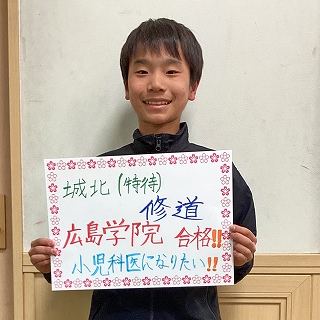 城北(特待)
修道
広島学院 合格!!
小児科医になりたい!!